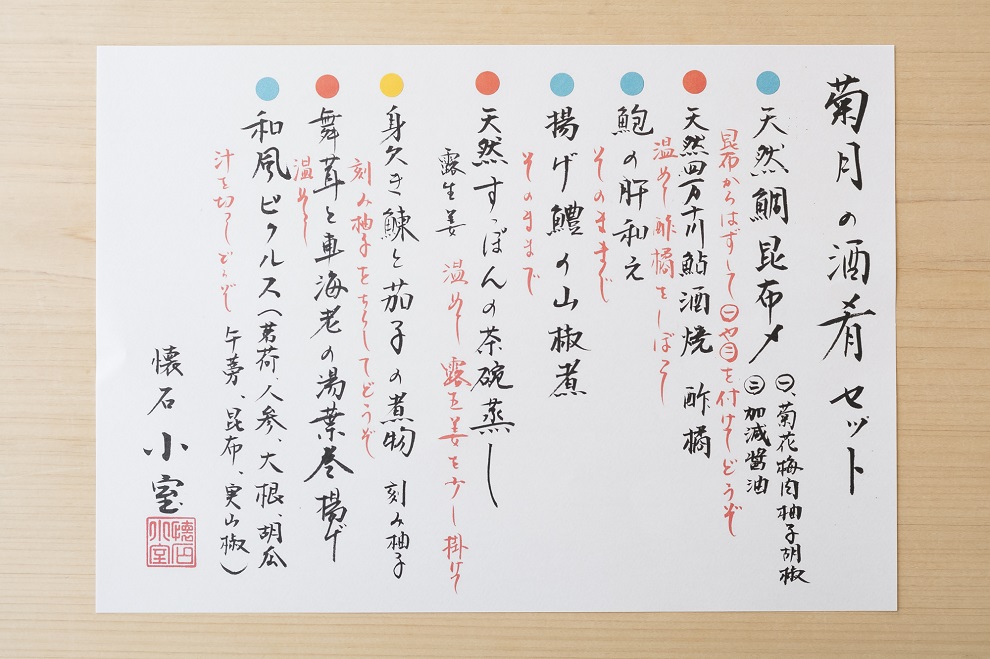 菊月の酒肴セット
天然鯛昆布〆
㊀、菊花梅肉柚子胡椒
㊁加減醤油
昆布からはずして㊀や㊁を付けてどうぞ
天然四万十川鮎酒焼 酢橘
温め 酢橘をしぼって
鮑の肝和え
そのままで
揚げ鱧の山椒煮
そのままで
天然すっぽんの茶碗蒸し
露生姜
温めて 露生姜を少し掛けて
身欠き鰊と茄子の煮物 刻み柚子
刻み柚子をちらしてどうぞ
舞茸と車海老の湯葉巻揚げ
温めて
和風ピクルス(茗荷、人参、大根、胡瓜
牛蒡、昆布、実山椒)
汁を切ってどうぞ
懐石 小室
懐石
小室